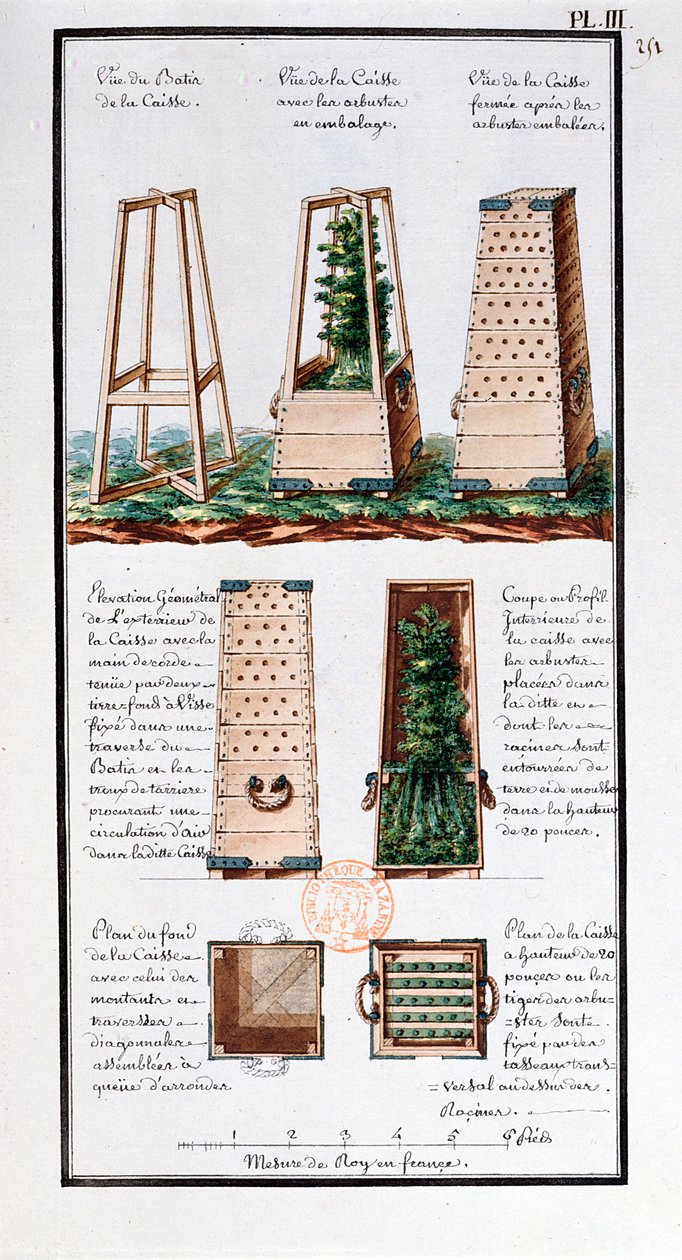 PL. III.
251
Vüe du Batis
de la Caisse.
Vüe de la Caisse
avec les arbustes
en embalage.
Vüe de la Caisse
fermée aprés les
arbustes embalées.
Elevation Géométral
de L'extérieur de
la Caisse avec la
main de corde
tenüe par deux
tirre=fond à Visse
fixé dans une
traverse du
Batis et les
troux de tarriere
procurant une
circulation d'air
dans la ditte Caisse
Coupe ou Profil
Interrieure de
la caisse avec
les arbustes
placées dans
la ditte et
dont les
racines Sont
entourrées de
terre et de mousse
dans la hauteur
de 20 pouces.
BIBLIOTHÈQUE MAZARINE
Plan du fond
de la Caisse
avec celui des
montants et
traverses
diagonnales
assemblées à
queüe d'arronde
Plan de la Caisse
a hauteur de 20
pouces ou les
tiges des arbu=
=stes Sont
fixé par des
tasseaux trans=
=versal au dessus des
Racines.
1 2 3 4 5 6 Pieds
Mesure de Roy en france.